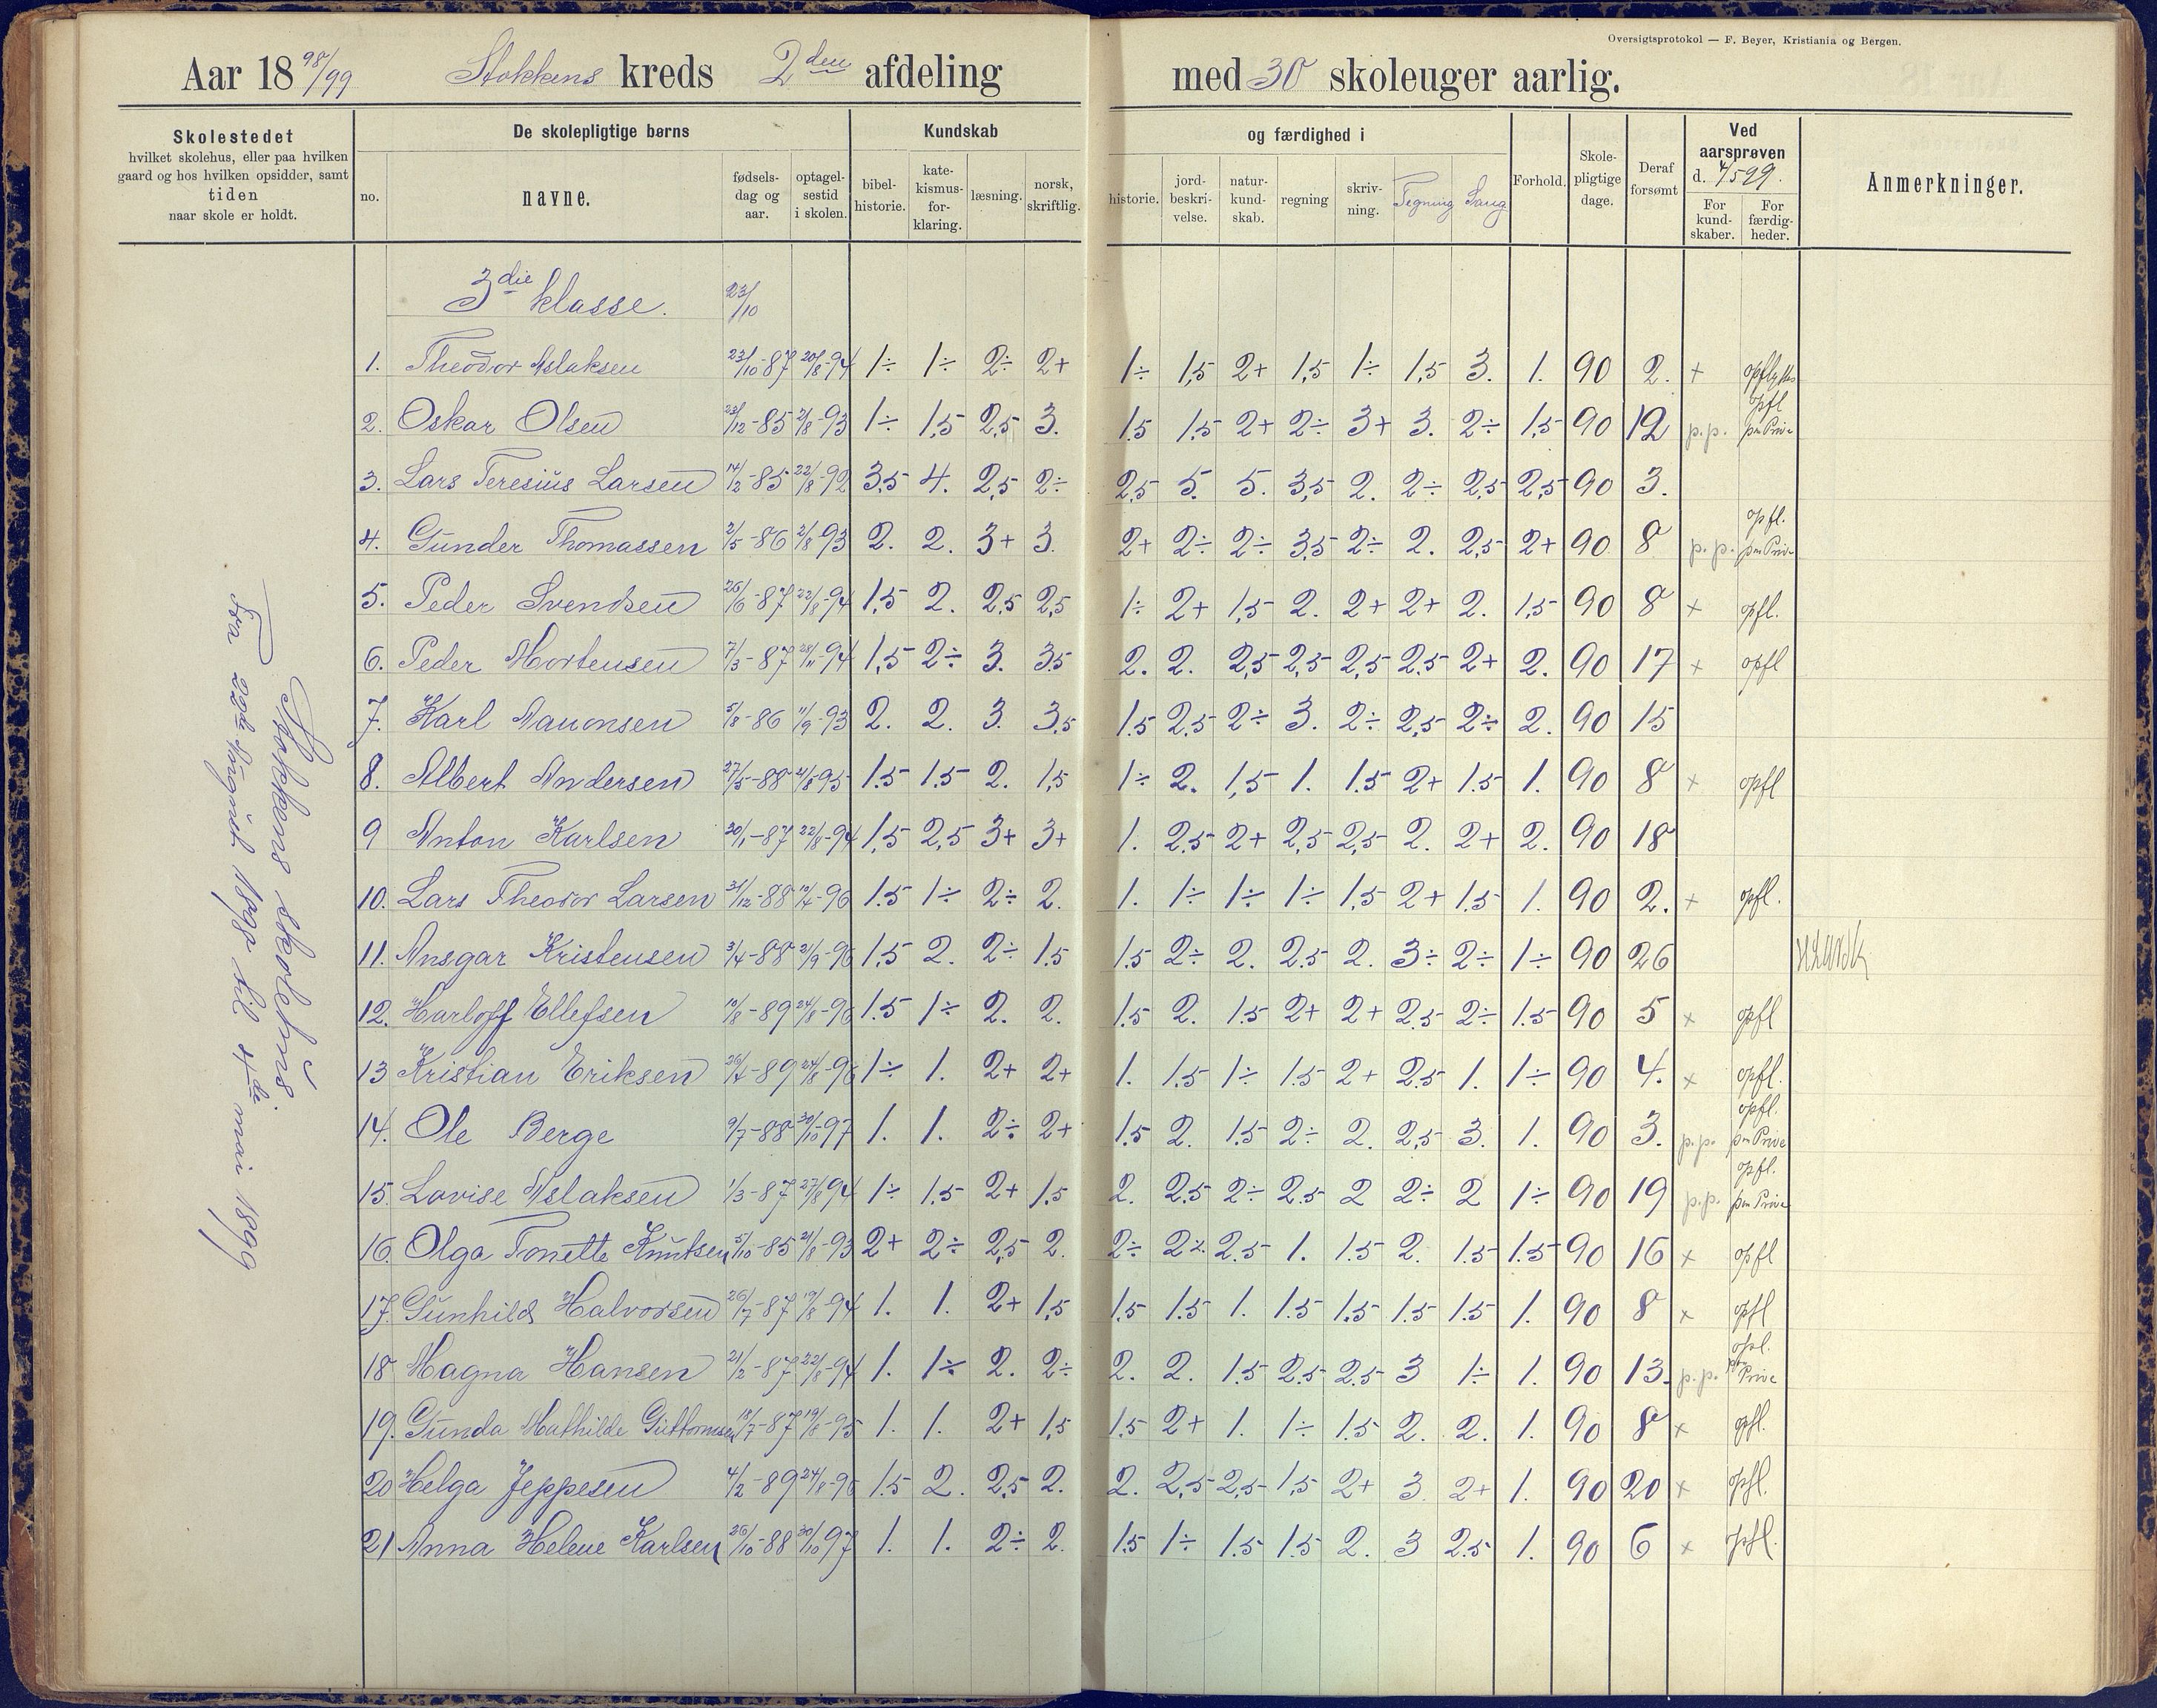 Oversigtsprotokol — F. Beyer, Kristiania og Bergen.
Aar 18 98/99 Stokkens kreds 2den afdeling med 30 skoleuger aarlig.
Skolestedet
hvilket skolehus, eller paa hvilken
gaard og hos hvilken opsidder, samt
tiden
naar skole er holdt.
De skolepligtige børns
no.
navne.
fødsels-
dag og
aar.
optagel-
sestid
i skolen.
Kundskab
bibel-
historie.
kate-
kismus-
for-
klaring.
læsning.
norsk,
skriftlig.
og færdighed i
historie.
jord-
beskri-
velse.
natur-
kund-
skab.
regning
skriv-
ning.
Tegning
Sang
Forhold.
Skole-
pligtige
dage.
Deraf
forsømt
Ved
aarsprøven
d. 4/5 99.
For
kund-
skaber.
For
færdig-
heder.
Anmerkninger.
Stokkens skolehus.
Fra 22de August 1898 til 4de mai 1899
3die klasse. 23/10
1. Theodor Aslaksen 23/10-87 20/8-94 1÷ 1÷ 2÷ 2+ 1÷ 1,5 2+ 1,5 1÷ 1,5 3. 1. 90 2. + opflyttes
2. Oskar Olsen 23/12-85 21/8-93 1÷ 1,5 2,5 3. 1.5 1.5 2+ 2÷ 3+ 3. 2÷ 1,5 90 12 p.p. opfl
3. Lars Teresius Larsen 14/2-85 22/8-92 3.5 4. 2,5 2÷ 2,5 5. 5. 3,5 2. 2÷ 2,5 2,5 90 3.
4. Gunder Thomassen 2/5-86 21/8-93 2. 2. 3+ 3. 2+ 2÷ 2÷ 3.5 2÷ 2. 2,5 2+ 90 8 p.p. opfl.
5. Peder Svendsen 26/6-87 22/8-94 1,5 2. 2,5 2,5 1÷ 2+ 1,5 2. 2+ 2+ 2. 1,5 90 8 + opfl.
6. Peder Mortensen 7/3-87 28/11-94 1,5 2÷ 3. 3.5 2. 2. 2,5 2,5 2,5 2.5 2+ 2. 90 17 + opfl
7. Karl Aanonsen 5/8-86 11/9-93 2. 2. 3. 3,5 1.5 2.5 2÷ 3. 2÷ 2,5 2÷ 2. 90 15
8. Albert Andersen 27/5-88 21/8-95 1.5 1.5 2. 1,5 1÷ 2. 1,5 1. 1.5 2+ 1.5 1. 90 8 x opfl
9 Anton Karlsen 30/1-87 22/8-94 1,5 2,5 3+ 3+ 1. 2.5 2+ 2,5 2,5 2. 2+ 2. 90 18
10. Lars Theodor Larsen 31/12-88 10/4-96 1.5 1÷ 2÷ 2. 1. 1÷ 1÷ 1÷ 1,5 2+ 1.5 1. 90 2. + opfl.
11. Ansgar Kristensen 3/4-88 21/9-96 1,5 2. 2÷ 1.5 1.5 2÷ 2. 2.5 2. 3÷ 2÷ 1÷ 90 26
12. Harloff Ellefsen 10/8-89 24/8-96 1.5 1÷ 2. 2. 1.5 2. 1.5 2+ 2+ 2.5 2÷ 1.5 90 5 x opfl
13 Kristian Eriksen 26/4-89 24/8-96 1÷ 1. 2+ 2+ 1. 1.5 1÷ 1.5 2+ 2.5 1. 1÷ 90 4. x opfl.
14. Ole Berge 9/7-88 30/10-97 1. 1. 2÷ 2+ 1.5 2. 1.5 2÷ 2. 2,5 3. 1. 90 3. p.p. opfl.
15. Lovise Aslaksen 1/3-87 27/8 94 1÷ 1.5 2+ 1.5 2. 2.5 2÷ 2.5 2 2÷ 2 1÷ 90 19 p.p. opfl.
16. Olga Tonette Knutsen 5/10-85 21/8-93 2+ 2÷ 2,5 2. 2÷ 2÷ 2.5 1. 1.5 2. 1.5 1.5 90 16 x opfl
17. Gunhild Halvorsen 26/7-87 19/8-94 1. 1. 2+ 1,5 1.5 1.5 1. 1.5 1.5 1.5 1.5 1. 90 8 x opfl
18 Magna Hansen 21/2-87 22/8-94 1. 1÷ 2. 2÷ 2. 2. 1.5 2.5 2.5 3 1÷ 1. 90 13. p.p. opl.
19. Gunda Mathilde Guttormsen 18/7-87 19/8-95 1. 1. 2+ 1,5 1.5 2+ 1. 1÷ 1.5 2. 2. 1. 90 8 x opfl.
20 Helga Jeppesen 4/2-89 24/8-96 1.5 2. 2,5 2. 2. 2,5 2,5 1,5 2+ 3. 2+ 1. 90 20 x opfl.
21 Anna Helene Karlsen 26/10-88 30/10 97 1. 1. 2÷ 2. 1.5 1÷ 1.5 1.5 2. 3 2.5 1. 90 6 x opfl.